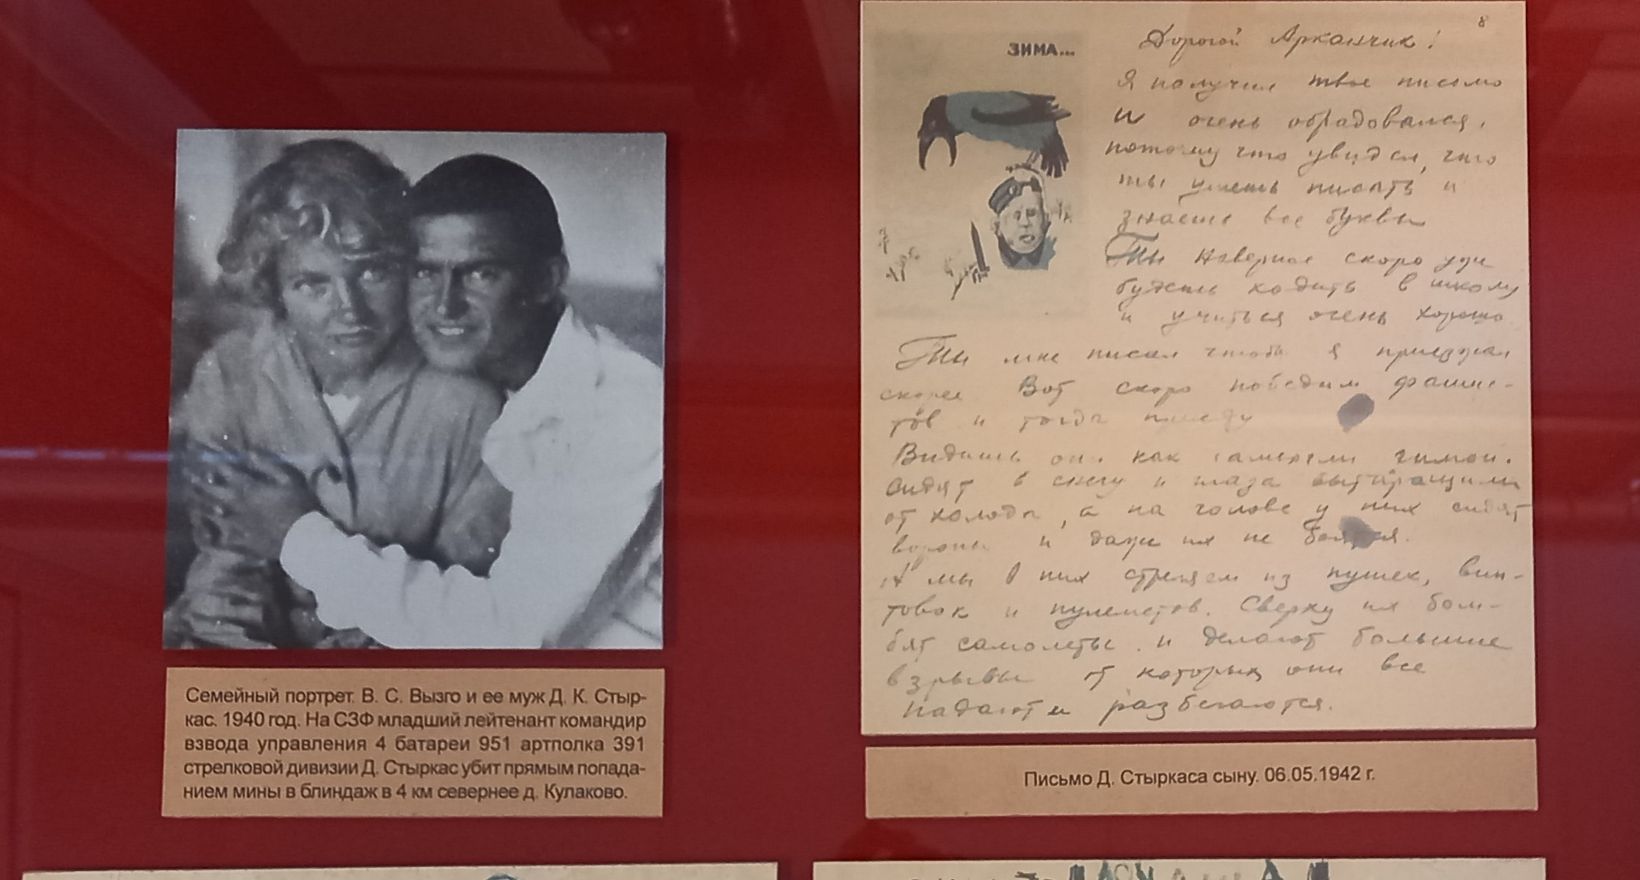 Семейный портрет. В. С. Вызго и ее муж Д. К. Стыр-
кас. 1940 год. На СЗФ младший лейтенант командир
взвода управления 4 батареи 951 артполка 391
стрелковой дивизии Д. Стыркас убит прямым попада-
нием мины в блиндаж в 4 км севернее д. Кулаково.
8
ЗИМА...
Дорогой Арканчик!
Я получил твое письмо
и очень обрадовался,
потому что увидел, что
ты умеешь писать и
знаешь все буквы
Ты наверное скоро уже
будешь ходить в школу
и учиться очень хорошо
Ты мне писал чтобы я приезжал
скорее Вот скоро победим фашис-
тов и тогда приеду
Видишь они как замерзли зимой.
Сидят в снегу и глаза вытаращили
от холода, а на голове у них сидят
вороны и даже их не боятся.
А мы в них стреляем из пушек, вин-
товок и пулеметов. Сверху их бом-
бят самолеты и делают большие
взрывы от которых они все
падают и разбегаются.
Письмо Д. Стыркаса сыну. 06.05.1942 г.